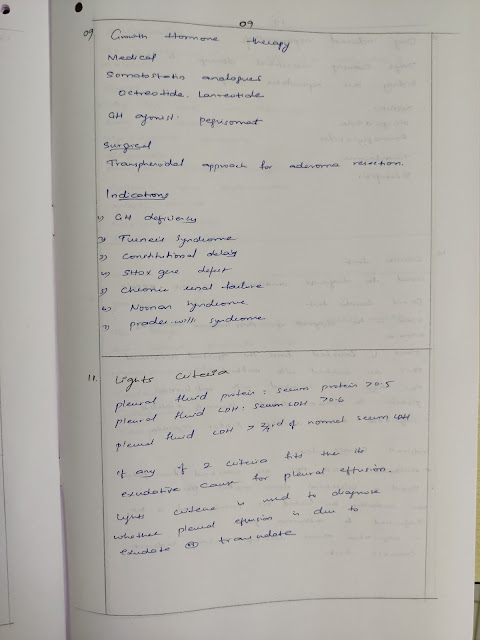 09
09 Growth Hormone therapy
Medical
Somatostatin analogues
Octreotide. Lanreotide
GH agonist. pegvisomat
Surgical
Transphenoidal approach for adenoma resection.
Indications
1) GH deficiency
2) Turner's syndrome
3) Constitutional delay
4) SHOX gene defect
5) Chronic renal failure
6) Noonan syndrome
7) prader-willi syndrome
11. Lights criteria
pleural fluid protein : serum protein >0.5
pleural fluid LDH : serum LDH >0.6
pleural fluid LDH > 2/3rd of normal serum LDH
If any of 2 criteria fits the its
exudative cause for pleural effusion.
Lights criteria is used to diagnose
whether pleural effusion is due to
exudate or transudate